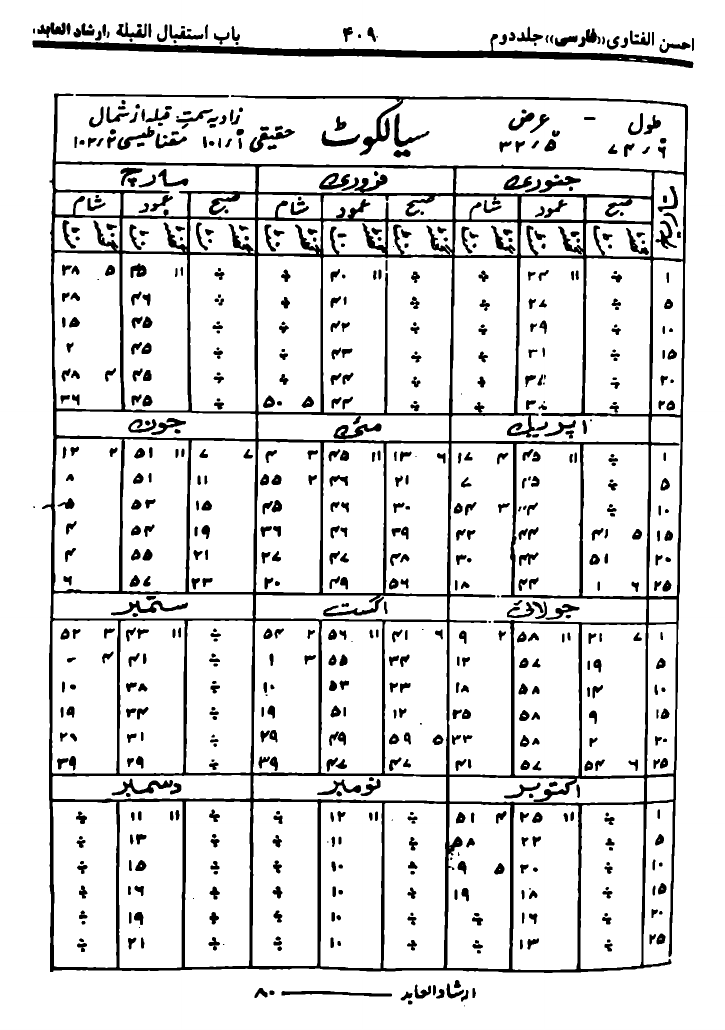 احسن الفتاوی ‹‹فارسی›› جلد دوم ۴۰۹ باب استقبال القبلة ‹ارشاد العابد›
طول - عرض سیالکوٹ زاویہ سمت قبلہ از شمال
۷۴/۶ ۳۲/۵ حقیقی ۱۰۱/۱ مقناطیسی ۱۰۲/۲
تاریخ جنوری فروری مارچ
صبح عمود شام صبح عمود شام صبح عمود شام
گھنٹہ منٹ گھنٹہ منٹ گھنٹہ منٹ گھنٹہ منٹ گھنٹہ منٹ گھنٹہ منٹ گھنٹہ منٹ گھنٹہ منٹ گھنٹہ منٹ
۱ ÷ ۱۱ ۲۴ ÷ ÷ ۱۱ ۴۰ ÷ ÷ ۱۱ ۴۵ ۵ ۳۸
۵ ÷ ۲۷ ÷ ÷ ۴۱ ÷ ÷ ۴۶ ۲۸
۱۰ ÷ ۲۹ ÷ ÷ ۴۲ ÷ ÷ ۴۵ ۱۵
۱۵ ÷ ۳۱ ÷ ÷ ۴۳ ÷ ÷ ۴۵ ۲
۲۰ ÷ ÷ ÷ ۴۴ ÷ ÷ ۴۵ ۴ ۴۸
۲۵ ÷ ÷ ÷ ۴۴ ۵ ۵۰ ÷ ۴۵ ۳۶
اپریل مئی جون
۱ ÷ ۱۱ ۴۵ ۴ ۱۷ ۶ ۱۳ ۱۱ ۴۵ ۳ ۴ ۷ ۷ ۱۱ ۵۱ ۲ ۱۲
۵ ÷ ۴۵ ۷ ۲۱ ۴۶ ۲ ۵۵ ۱۱ ۵۱ ۸
۱۰ ÷ ۳ ۵۴ ۳۰ ۴۶ ۴۵ ۱۵ ۵۳ ۵
۱۵ ۵ ۴۱ ۴۴ ۴۲ ۳۹ ۴۶ ۳۶ ۱۹ ۵۴ ۴
۲۰ ۵۱ ۴۴ ۳۰ ۴۸ ۴۷ ۲۷ ۲۱ ۵۵ ۴
۲۵ ۶ ۱ ۴۴ ۱۸ ۵۶ ۴۹ ۲۰ ۲۳ ۵۷ ۶
جولائی اگست ستمبر
۱ ۷ ۲۱ ۱۱ ۵۸ ۲ ۹ ۶ ۴۱ ۱۱ ۵۶ ۲ ۵۴ ÷ ۱۱ ۴۳ ۳ ۵۲
۵ ۱۹ ۵۷ ۱۲ ۳۴ ۵۵ ۳ ۱ ÷ ۴۱ ۴ -
۱۰ ۱۴ ۵۸ ۱۸ ۲۳ ۵۳ ۱۰ ÷ ۳۸ ۱۰
۱۵ ۹ ۵۸ ۲۵ ۱۲ ۵۱ ۱۹ ÷ ۳۴ ۱۹
۲۰ ۲ ۵۸ ۳۳ ۵ ۵۹ ۴۹ ۲۹ ÷ ۳۱ ۲۹
۲۵ ۶ ۵۴ ۵۷ ۴۱ ۴۷ ۴۷ ۳۹ ÷ ۲۹ ۳۹
اکتوبر نومبر دسمبر
۱ ÷ ۱۱ ۲۵ ۴ ۵۱ ÷ ۱۱ ۱۲ ÷ ÷ ۱۱ ۱۱ ÷
۵ ÷ ۲۲ ۵۸ ÷ ۱۱ ÷ ÷ ۱۳ ÷
۱۰ ÷ ۲۰ ۵ ۹ ÷ ۱۰ ÷ ÷ ۱۵ ÷
۱۵ ÷ ۱۸ ۱۹ ÷ ۱۰ ÷ ÷ ۱۶ ÷
۲۰ ÷ ۱۶ ÷ ÷ ۱۰ ÷ ÷ ۱۹ ÷
۲۵ ÷ ۱۳ ÷ ÷ ۱۰ ÷ ÷ ۲۱ ÷
ارشاد العابد ——— ۸۰